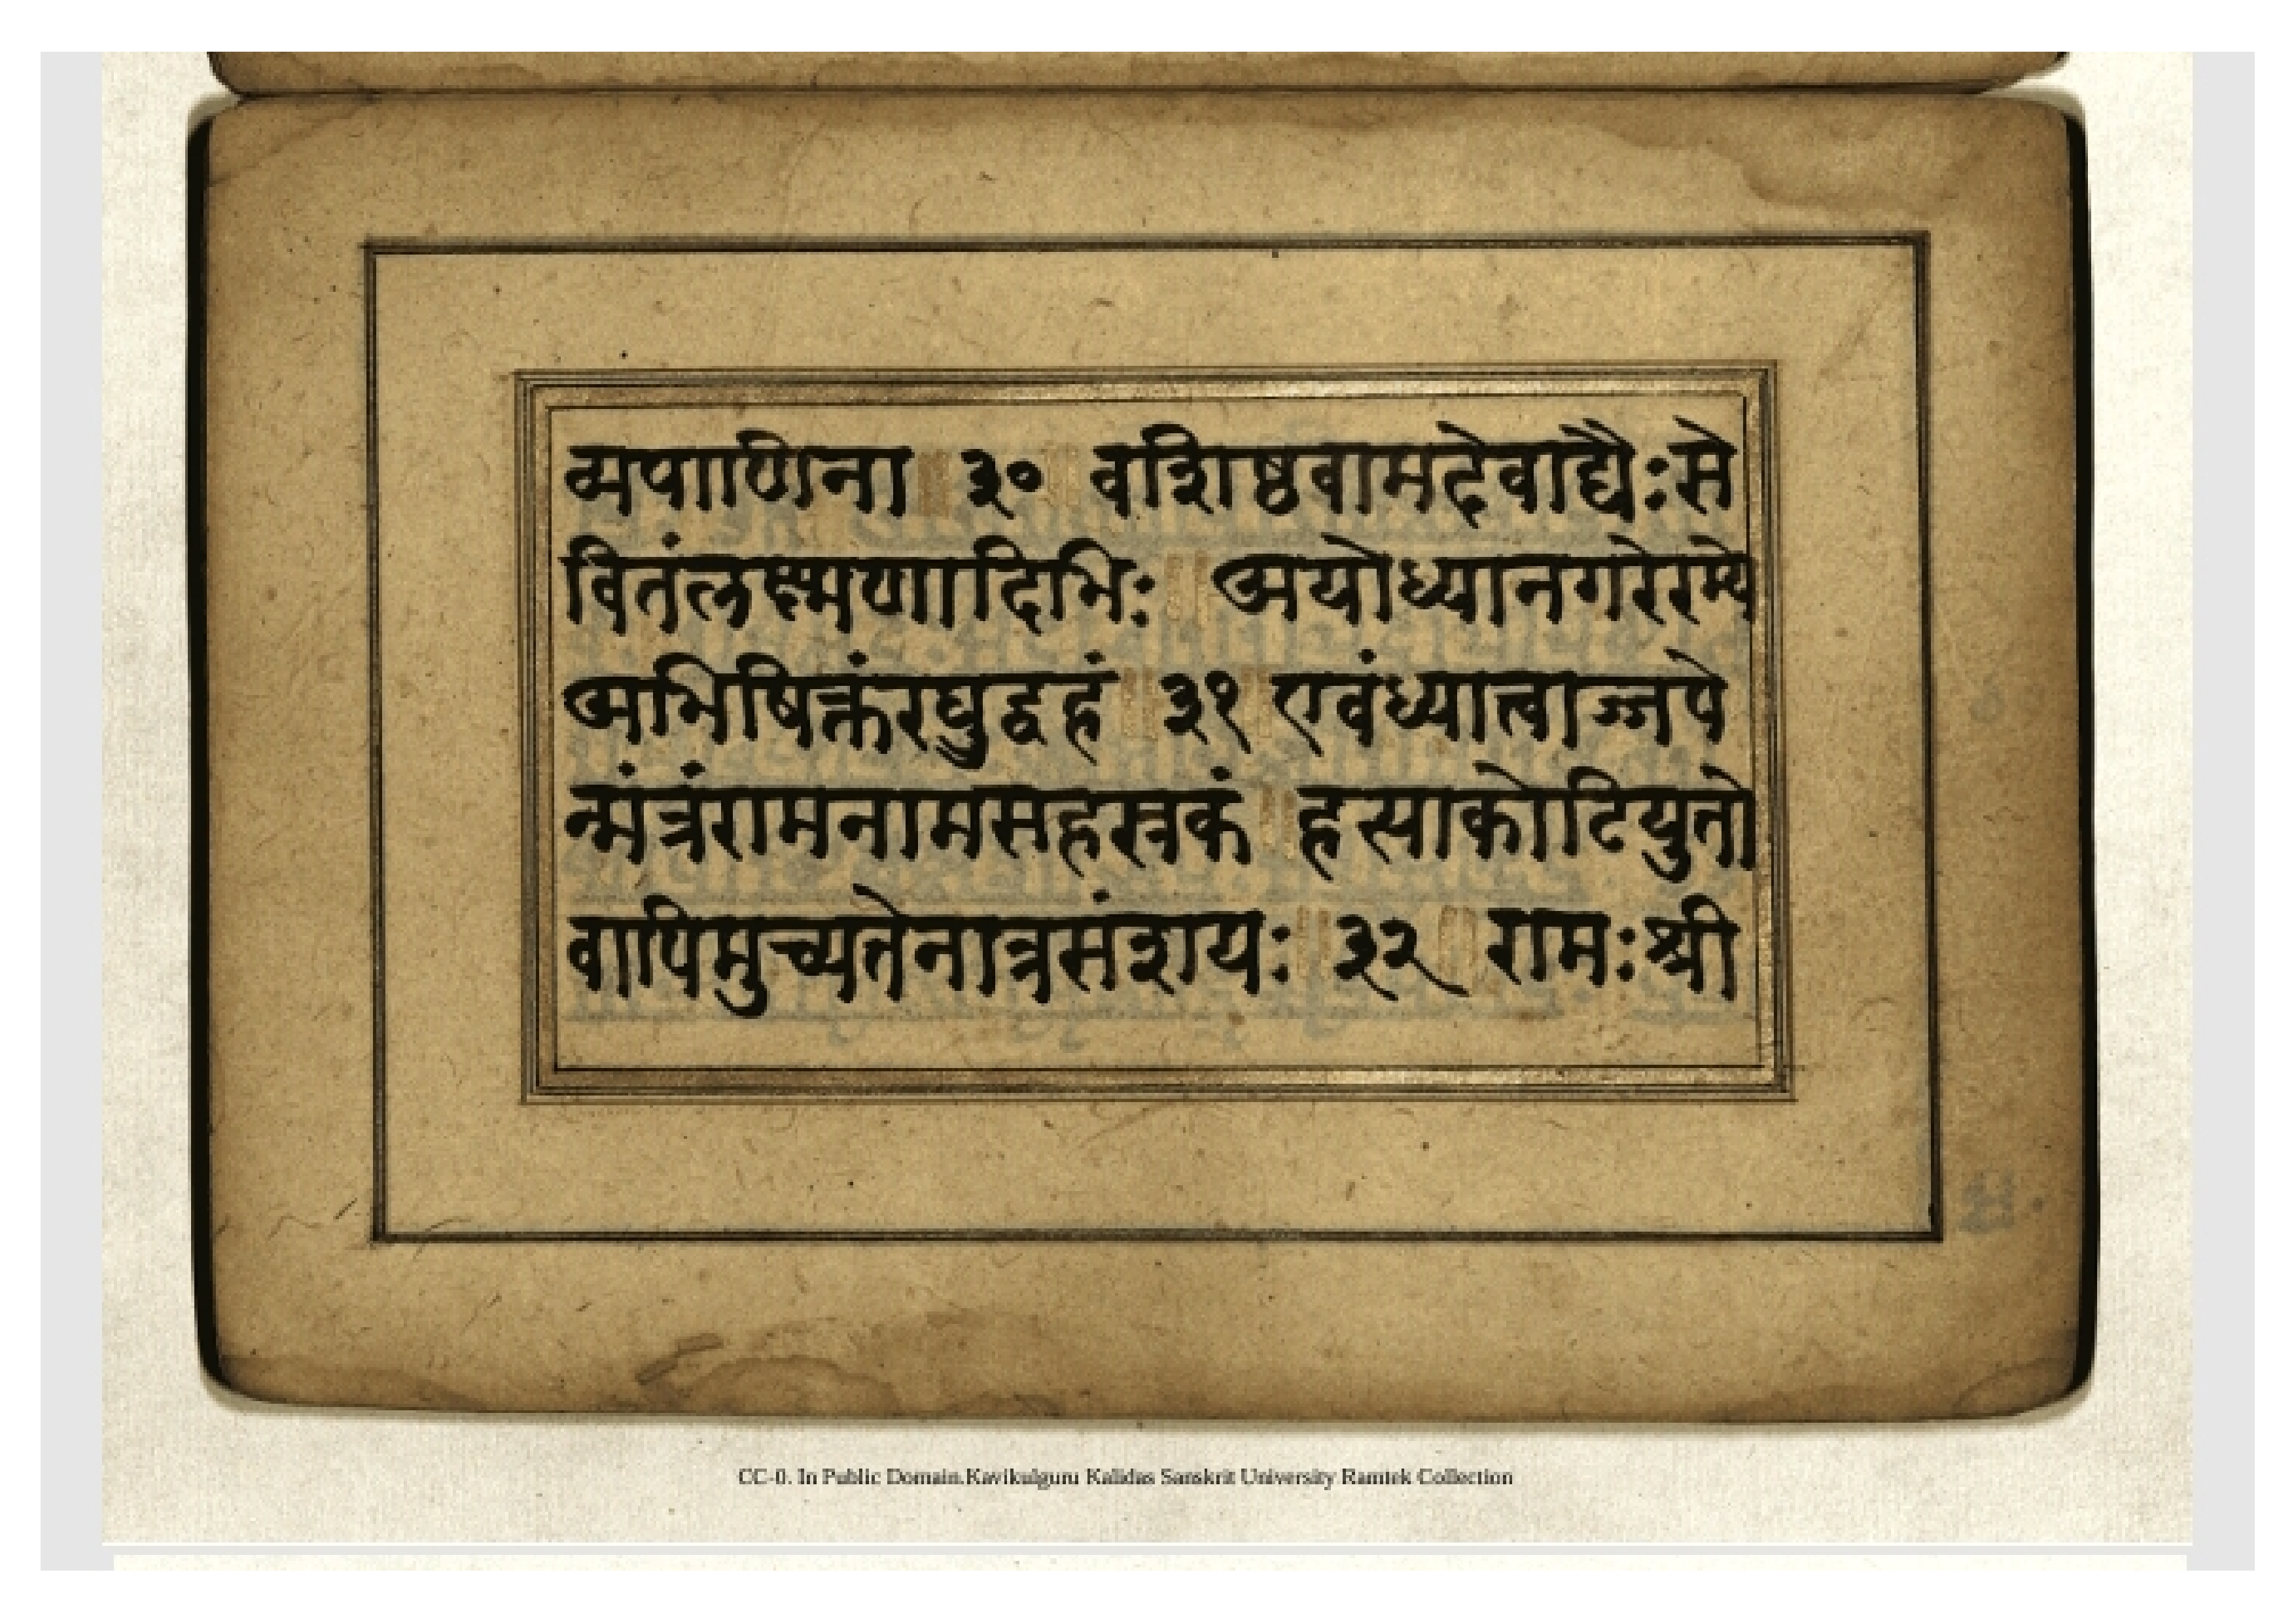 व्यपाणिना ॥ ३० ॥ वशिष्ठवामदेवाद्यैः से
वितंलक्ष्मणादिभिः ॥ अयोध्यानगरेरम्ये
अभिषिक्तंरघुद्वहं ॥ ३१ ॥ एवंध्यात्वाज्जपे
न्मंत्रंरामनामसहस्त्रकं ॥ हत्साकोटियुतो
वापिमुच्यतेनात्रसंशयः ॥ ३२ ॥ रामःश्री
CC-0. In Public Domain.Kavikulguru Kalidas Sanskrit University Ramtek Collection